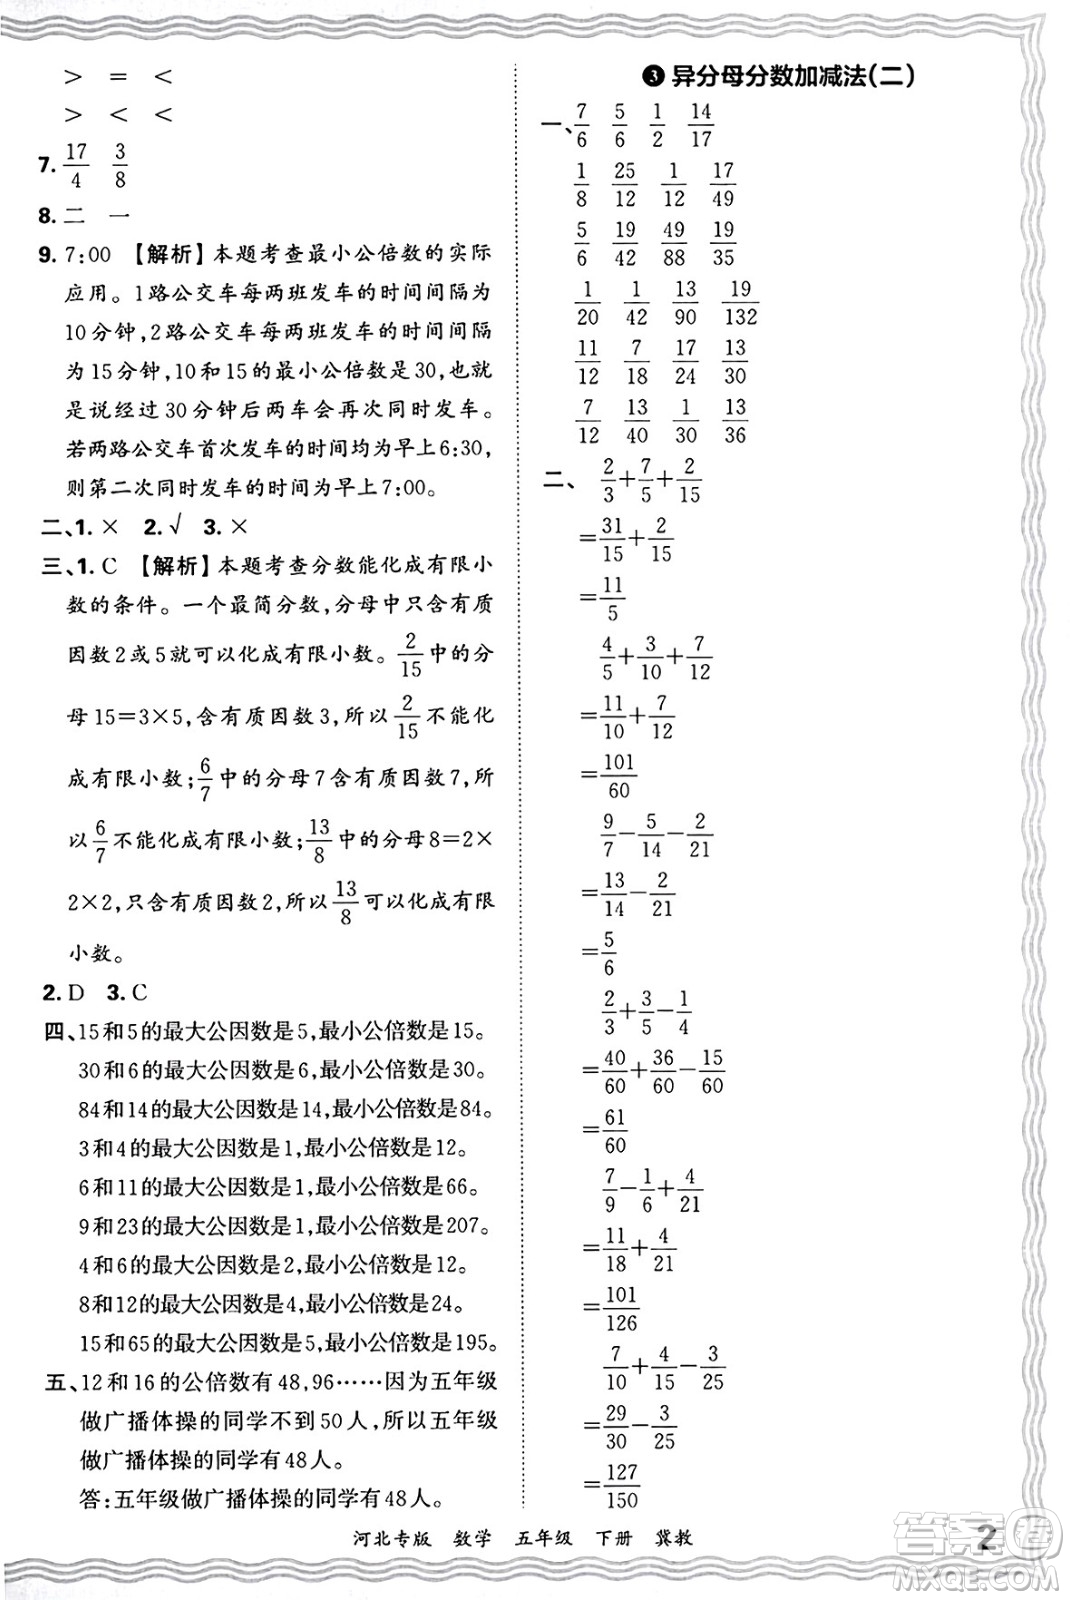 > = <
> < <
7. 17/4 3/8
8. 二 一
9. 7:00 【解析】本题考查最小公倍数的实际
应用。1路公交车每两班发车的时间间隔为
10分钟,2路公交车每两班发车的时间间隔
为15分钟,10和15的最小公倍数是30,也就
是说经过30分钟后两车会再次同时发车。
若两路公交车首次发车的时间均为早上6:30,
则第二次同时发车的时间为早上7:00。
二、1. × 2. √ 3. ×
三、1. C 【解析】本题考查分数能化成有限小
数的条件。一个最简分数,分母中只含有质
因数2或5就可以化成有限小数。2/15中的分
母15=3×5,含有质因数3,所以2/15不能化
成有限小数;6/7中的分母7含有质因数7,所
以6/7不能化成有限小数;13/8中的分母8=2×
2×2,只含有质因数2,所以13/8可以化成有限
小数。
2. D 3. C
四、15和5的最大公因数是5,最小公倍数是15。
30和6的最大公因数是6,最小公倍数是30。
84和14的最大公因数是14,最小公倍数是84。
3和4的最大公因数是1,最小公倍数是12。
6和11的最大公因数是1,最小公倍数是66。
9和23的最大公因数是1,最小公倍数是207。
4和6的最大公因数是2,最小公倍数是12。
8和12的最大公因数是4,最小公倍数是24。
15和65的最大公因数是5,最小公倍数是195。
五、12和16的公倍数有48,96……因为五年级
做广播体操的同学不到50人,所以五年级
做广播体操的同学有48人。
答:五年级做广播体操的同学有48人。
3 异分母分数加减法(二)
一、7/6 5/6 1/2 14/17
1/8 25/12 1/12 17/49
5/6 19/42 49/88 19/35
1/20 1/42 13/90 19/132
11/12 7/18 17/24 13/30
7/12 13/40 1/30 13/36
二、2/3+7/5+2/15
=31/15+2/15
=11/5
4/5+3/10+7/12
=11/10+7/12
=101/60
9/7−5/14−2/21
=13/14−2/21
=5/6
2/3+3/5−1/4
=40/60+36/60−15/60
=61/60
7/9−1/6+4/21
=11/18+4/21
=101/126
7/10+4/15−3/25
=29/30−3/25
=127/150
河北专版 数学 五年级 下册 冀教
2
答案圈
MXQE.COM